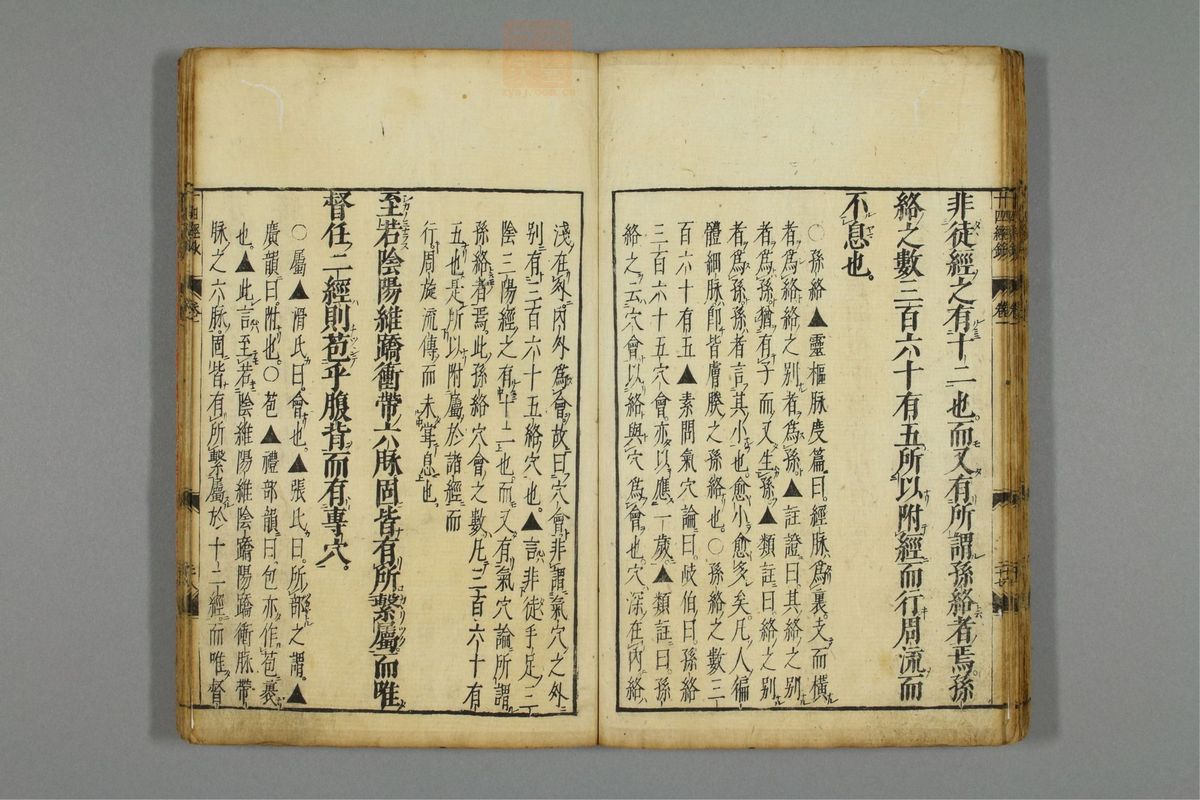 非徒經之有十二也而又有所謂孫絡者焉孫
絡之數三百六十有五所以附經而行周流而
不息也。
○孫絡▲靈樞脉度篇曰。經脉爲裏。支而橫
者爲絡絡之別者爲孫。▲註證曰其絡之別
者爲孫猶有子而又生孫▲類註曰絡之別
者爲孫孫者言其小也。愈小愈多矣。凡人徧
體細脉卽皆膚腠之孫絡也。○孫絡之數三
百六十有五▲素問氣穴論曰。歧伯曰孫絡
三百六十五穴會。亦以應一歲。▲類註曰孫
絡之云穴會以絡與穴爲會也穴深在內絡
淺在外。內外爲會故曰穴會非謂氣穴之外
別有三百六十五絡穴也。▲言非徒手足三
陰三陽經之有十二也而又有氣穴論所謂
孫絡者焉。此孫絡穴會之數凡三百六十有
五也是所以附屬於諸經而
行周旋流傳而未嘗息也
至若陰陽維蹻衝帶六脉固皆有所繫屬而唯
督任二經則苞乎腹背而有專穴。
○屬▲滑氏曰。會也。▲張氏曰。所部之謂。▲
廣韻曰。附也○苞▲禮部韻曰。包亦作苞裹
也。▲此言至若陰維陽維陰蹻陽蹻衝脉帶
脉之六脉。固皆有所繫屬於十二經。而唯督